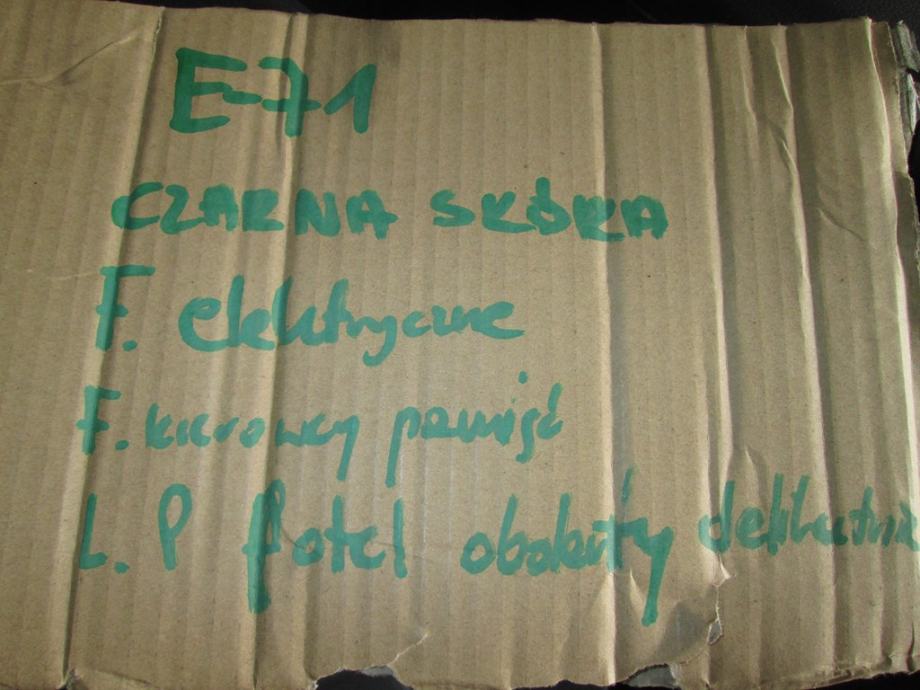 E-71
CZARNA SKÓRA
F. elektryczne
F. kierowcy pamięć
L. P fotel obdarty delikatnie